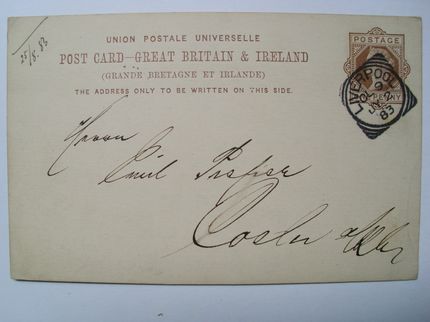 25/8.83
UNION POSTALE UNIVERSELLE
POST CARD—GREAT BRITAIN & IRELAND
(GRANDE BRETAGNE ET IRLANDE)
THE ADDRESS ONLY TO BE WRITTEN ON THIS SIDE.
POSTAGE
PENNY
LIVERPOOL
83
Herrn
Emil